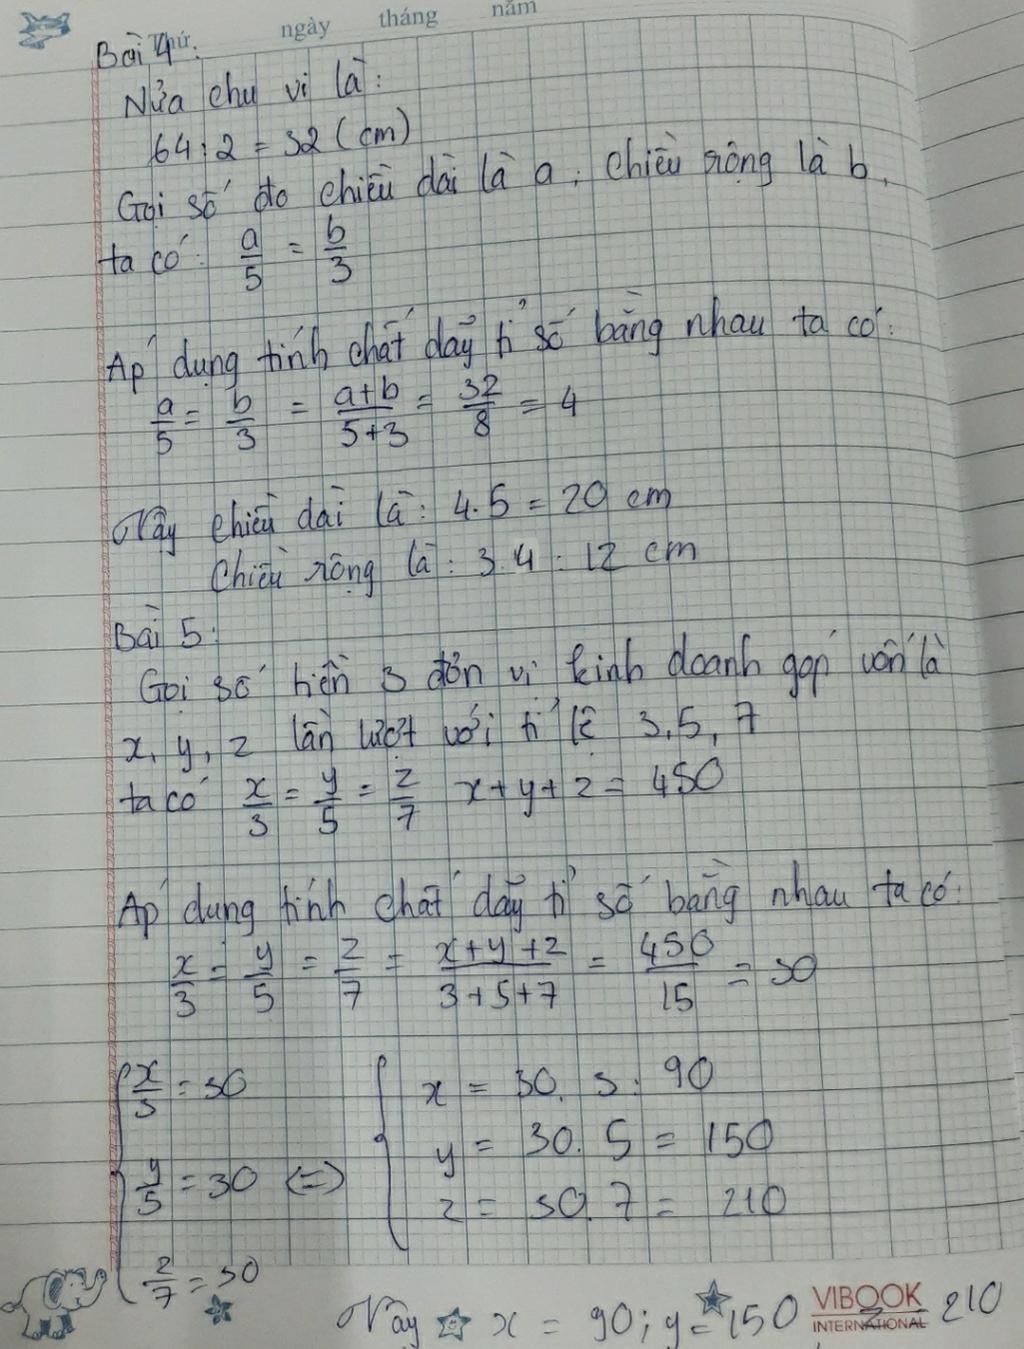 Thứ ngày tháng năm
Bài 4:
Nửa chu vi là:
64:2 = 32 (cm)
Gọi số đo chiều dài là a, chiều rộng là b,
ta có: a/5 = b/3
Áp dụng tính chất dãy tỉ số bằng nhau ta có:
a/5 = b/3 = a+b/5+3 = 32/8 = 4
Vậy chiều dài là: 4.5 = 20 cm
Chiều rộng là: 3.4 = 12 cm
Bài 5:
Gọi số tiền 3 đơn vị kinh doanh góp vốn là
x, y, z lần lượt với tỉ lệ 3, 5, 7
ta có x/3 = y/5 = z/7 x+y+z = 450
Áp dụng tính chất dãy tỉ số bằng nhau ta có:
x/3 = y/5 = z/7 = x+y+z/3+5+7 = 450/15 = 30
x/3 = 30 x = 30.3 = 90
y/5 = 30 (=) y = 30.5 = 150
z = 30.7 = 210
z/7 = 30
Vậy x = 90; y = 150 z = 210
VIBOOK
INTERNATIONAL